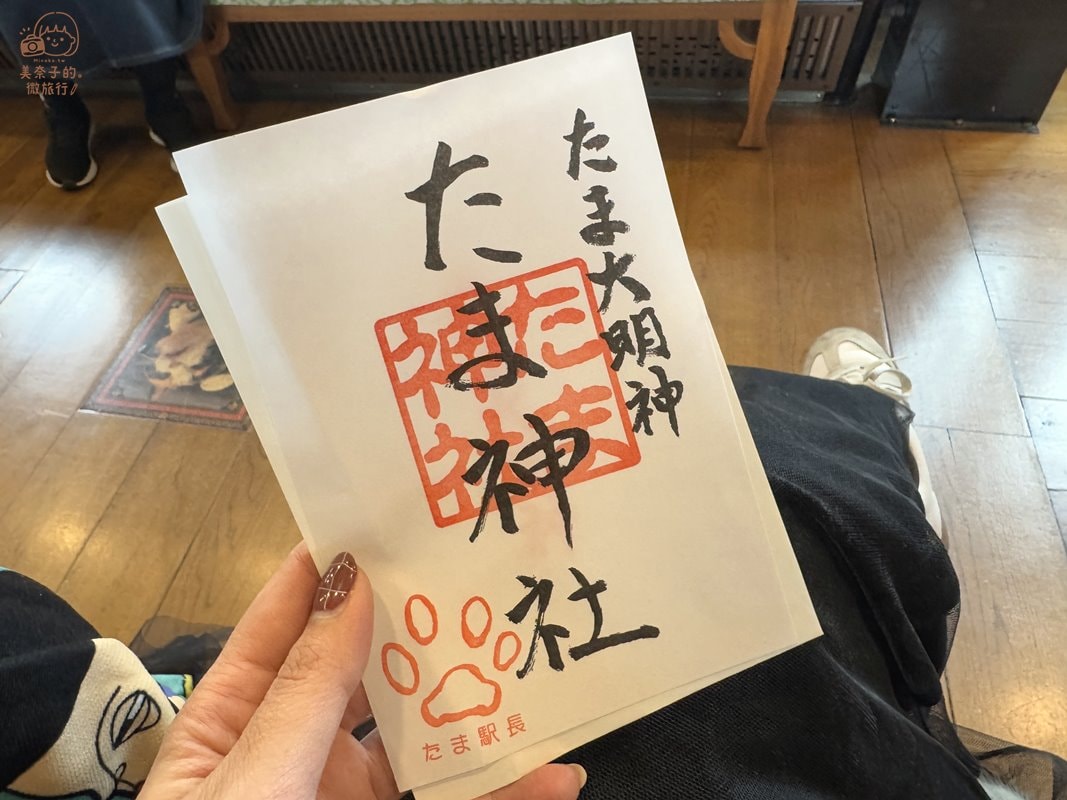 Minako.tw
美奈子的。
微旅行
たま大明神
たま神社
たま
神社
たま駅長